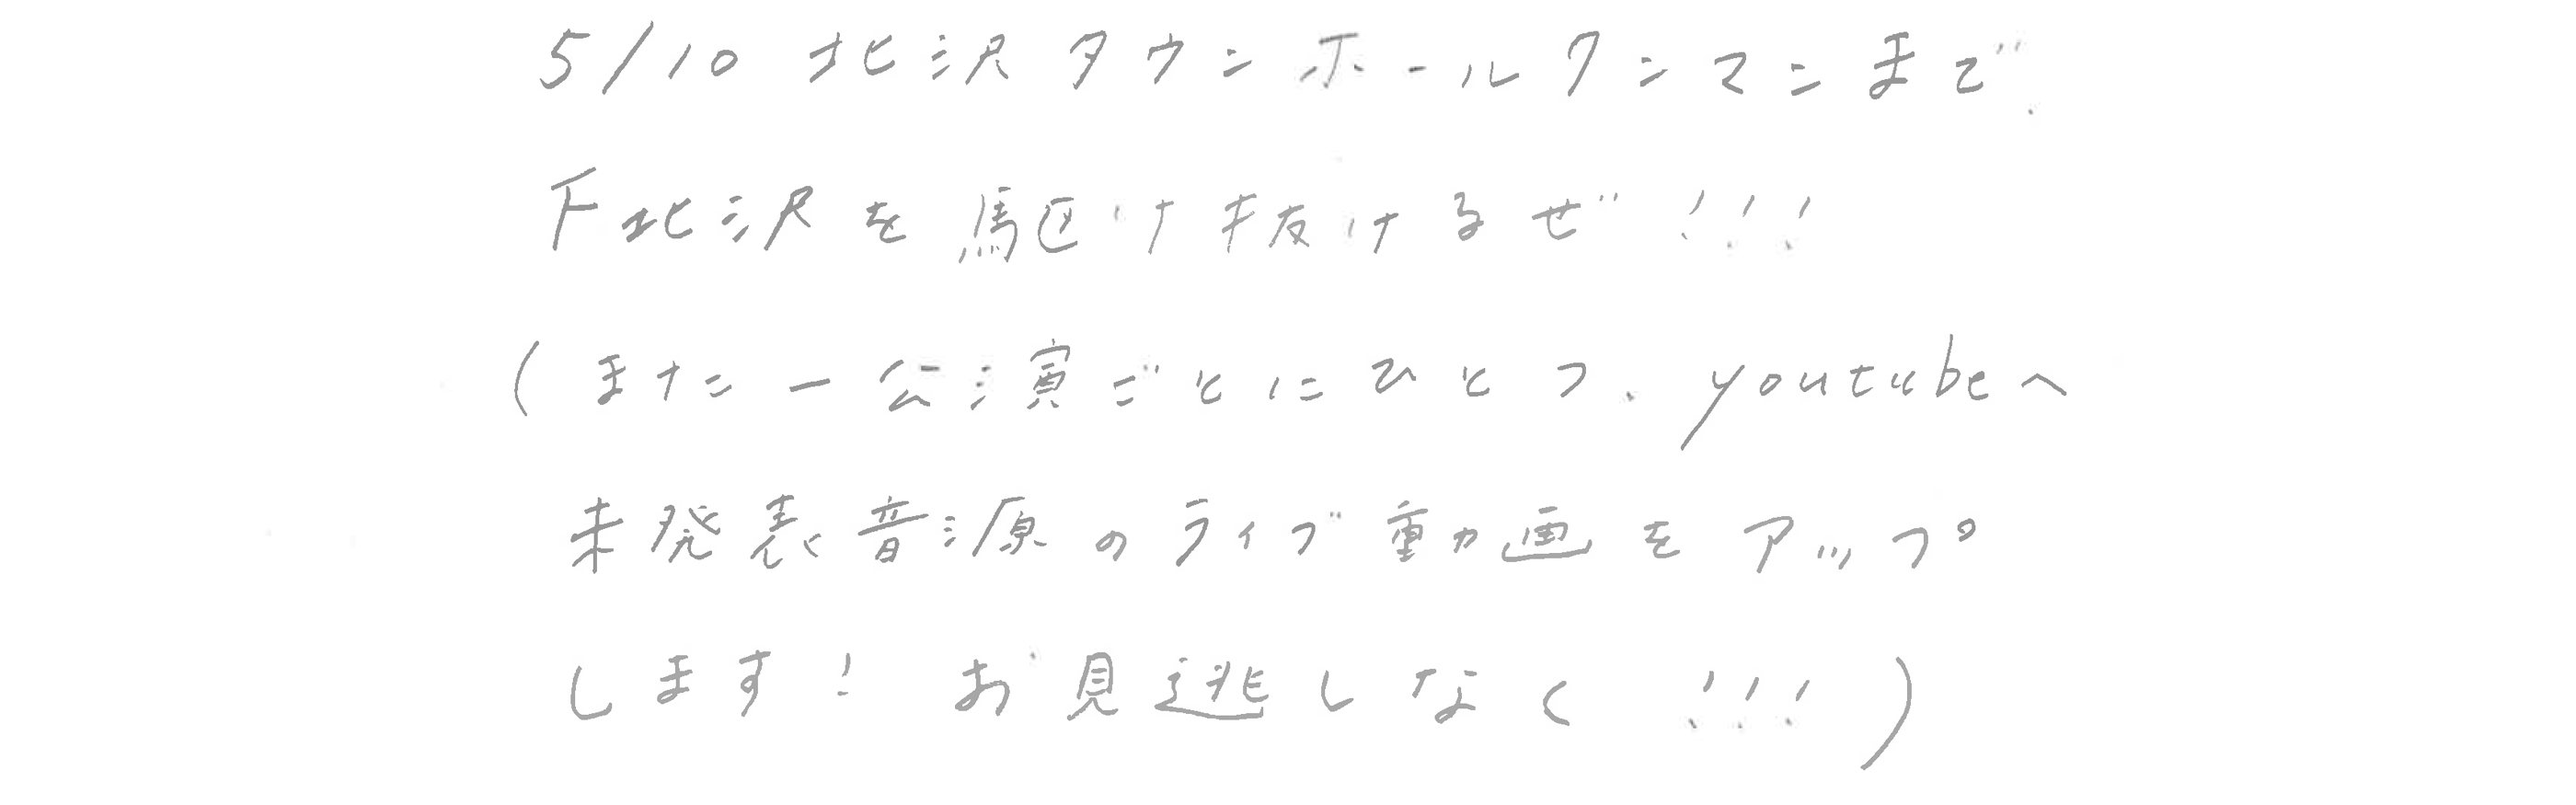 5/10 北沢タウンホールワンマンまで、
下北沢を駆け抜けるぜ!!!
(また一公演ごとにひとつ、youtubeへ
未発表音源のライブ動画をアップ
します! お見逃しなく!!!)